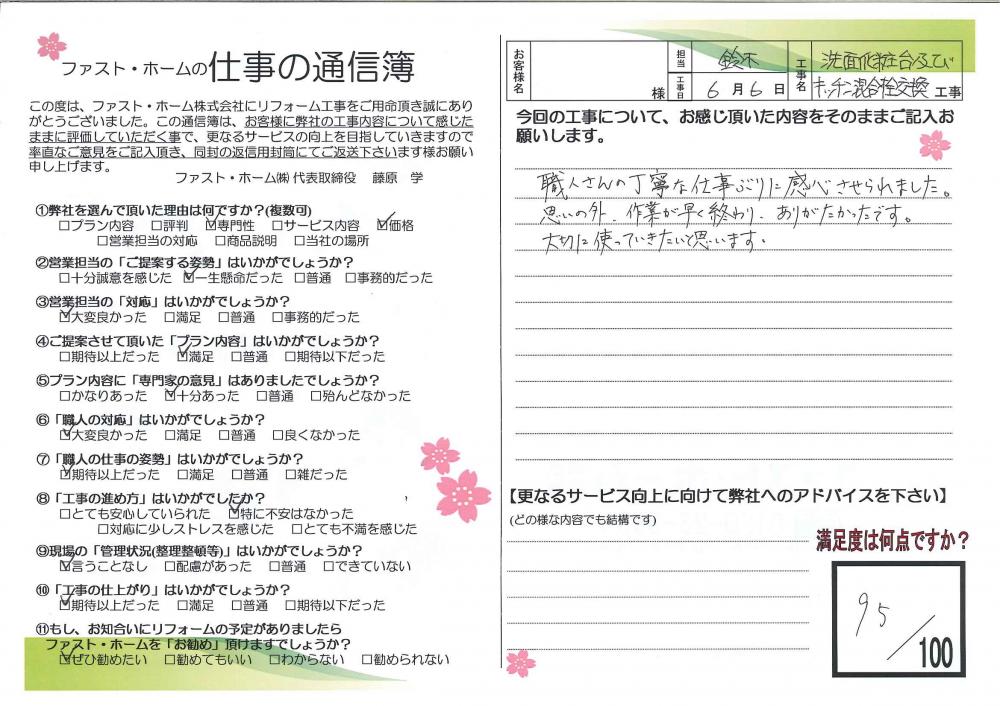 ファスト・ホームの仕事の通信簿
この度は、ファスト・ホーム株式会社にリフォーム工事をご用命頂き誠にあり
がとうございました。この通信簿は、お客様に弊社の工事内容について感じた
ままに評価していただく事で、更なるサービスの向上を目指していきますので
率直なご意見をご記入頂き、同封の返信用封筒にてご返送下さいます様お願い
申し上げます。
ファスト・ホーム㈱ 代表取締役 藤原 学
①弊社を選んで頂いた理由は何ですか?(複数可)
□プラン内容 □評判 ☑専門性 □サービス内容 ☑価格
□営業担当の対応 □商品説明 □当社の場所
②営業担当の「ご提案する姿勢」はいかがでしょうか?
□十分誠意を感じた ☑一生懸命だった □普通 □事務的だった
③営業担当の「対応」はいかがでしょうか?
☑大変良かった □満足 □普通 □事務的だった
④ご提案させて頂いた「プラン内容」はいかがでしょうか?
□期待以上だった ☑満足 □普通 □期待以下だった
⑤プラン内容に「専門家の意見」はありましたでしょうか?
□かなりあった ☑十分あった □普通 □殆んどなかった
⑥「職人の対応」はいかがでしょうか?
☑大変良かった □満足 □普通 □良くなかった
⑦「職人の仕事の姿勢」はいかがでしょうか?
☑期待以上だった □満足 □普通 □雑だった
⑧「工事の進め方」はいかがでしたか?
□とても安心していられた ☑特に不安はなかった
□対応に少しストレスを感じた □とても不満を感じた
⑨現場の「管理状況(整理整頓等)」はいかがでしょうか?
☑言うことなし □配慮があった □普通 □できていない
⑩「工事の仕上がり」はいかがでしょうか?
☑期待以上だった □満足 □普通 □期待以下だった
⑪もし、お知合いにリフォームの予定がありましたら
ファスト・ホームを「お勧め」頂けますでしょうか?
☑ぜひ勧めたい □勧めてもいい □わからない □勧められない
お客様名 様 担当 鈴木 工事日 6月6日 工事名 洗面化粧台及び
キッチン混合栓交換 工事
今回の工事について、お感じ頂いた内容をそのままご記入お
願いします。
職人さんの丁寧な仕事ぶりに感心させられました。
思いの外、作業が早く終わり、ありがたかったです。
大切に使っていきたいと思います。
【更なるサービス向上に向けて弊社へのアドバイスを下さい】
(どの様な内容でも結構です)
満足度は何点ですか?
95/100